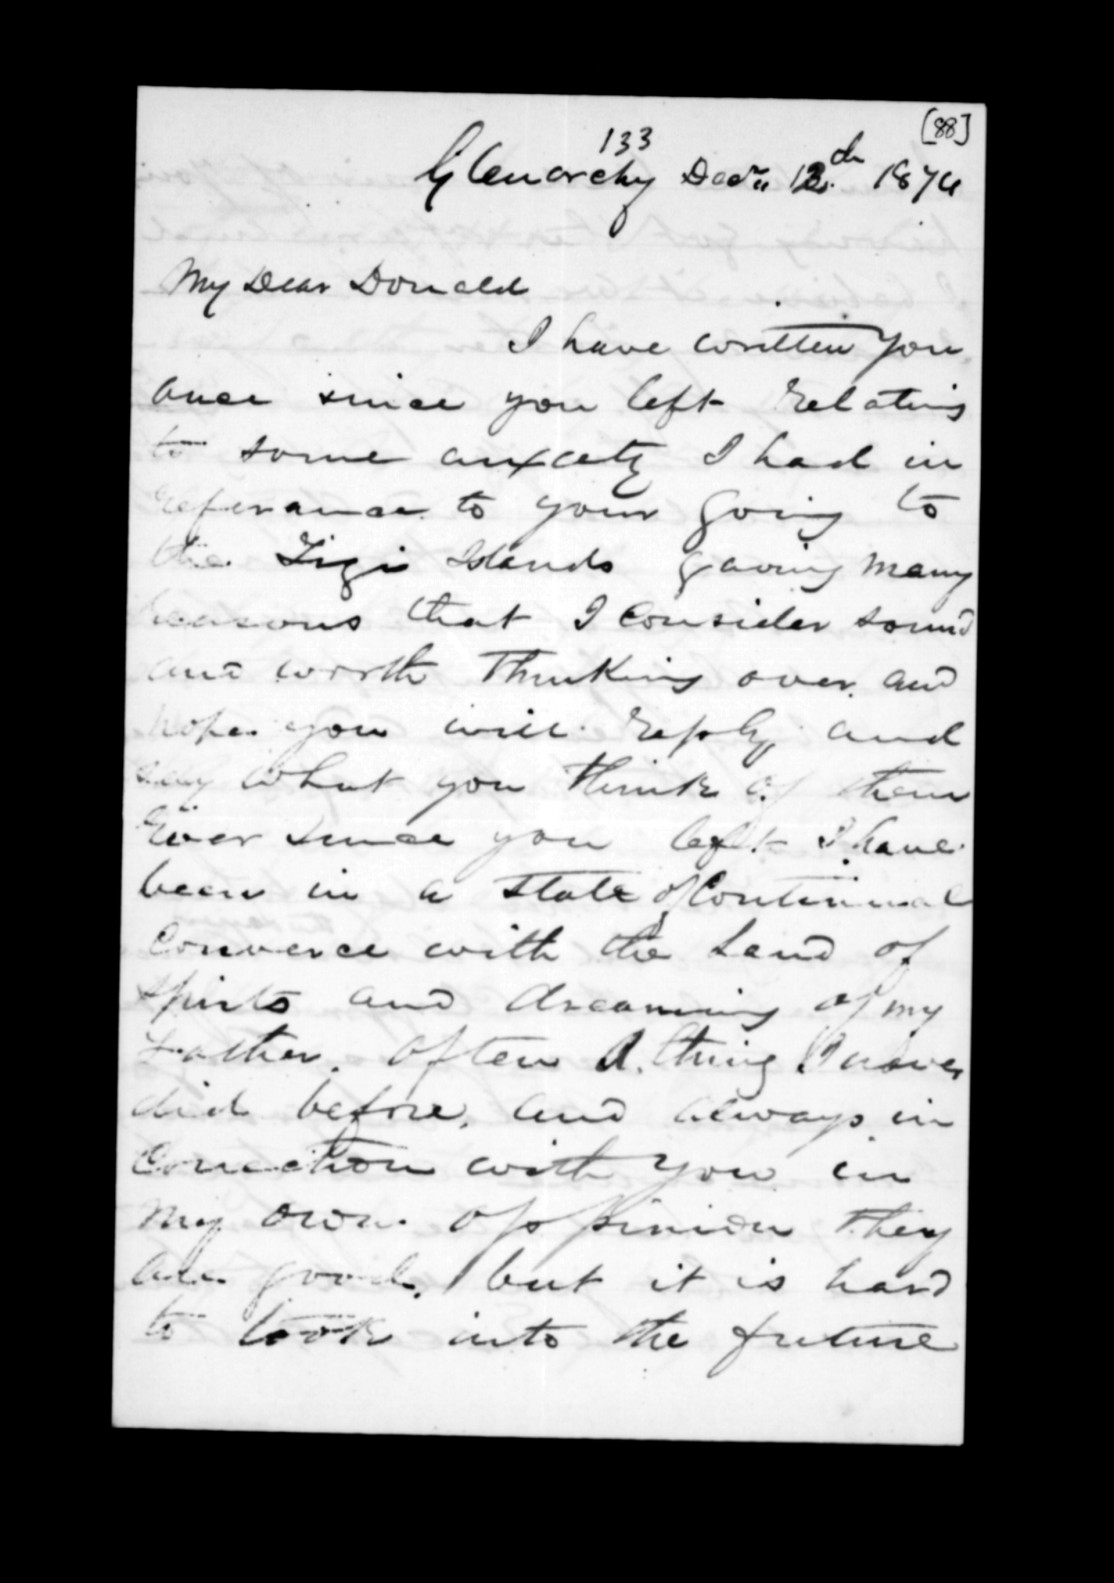 [88]
133
Glenorchy Decr 12th 1874
My Dear Donald
I have written you
once since you left relating
to some anxcety I had in
referance to your going to
the Figi Islands gaving many
reasons that I consider sound
and worth Thinking over and
hope you will reply and
say what you think of them
Ever since you left I have
been in a state of Continual
Converce with the Land of
Spirits and dreaming of my
Father often A thing I never
did before, and always in
Conection with you in
my own oppinion they
are good, but it is hard
to look into the future